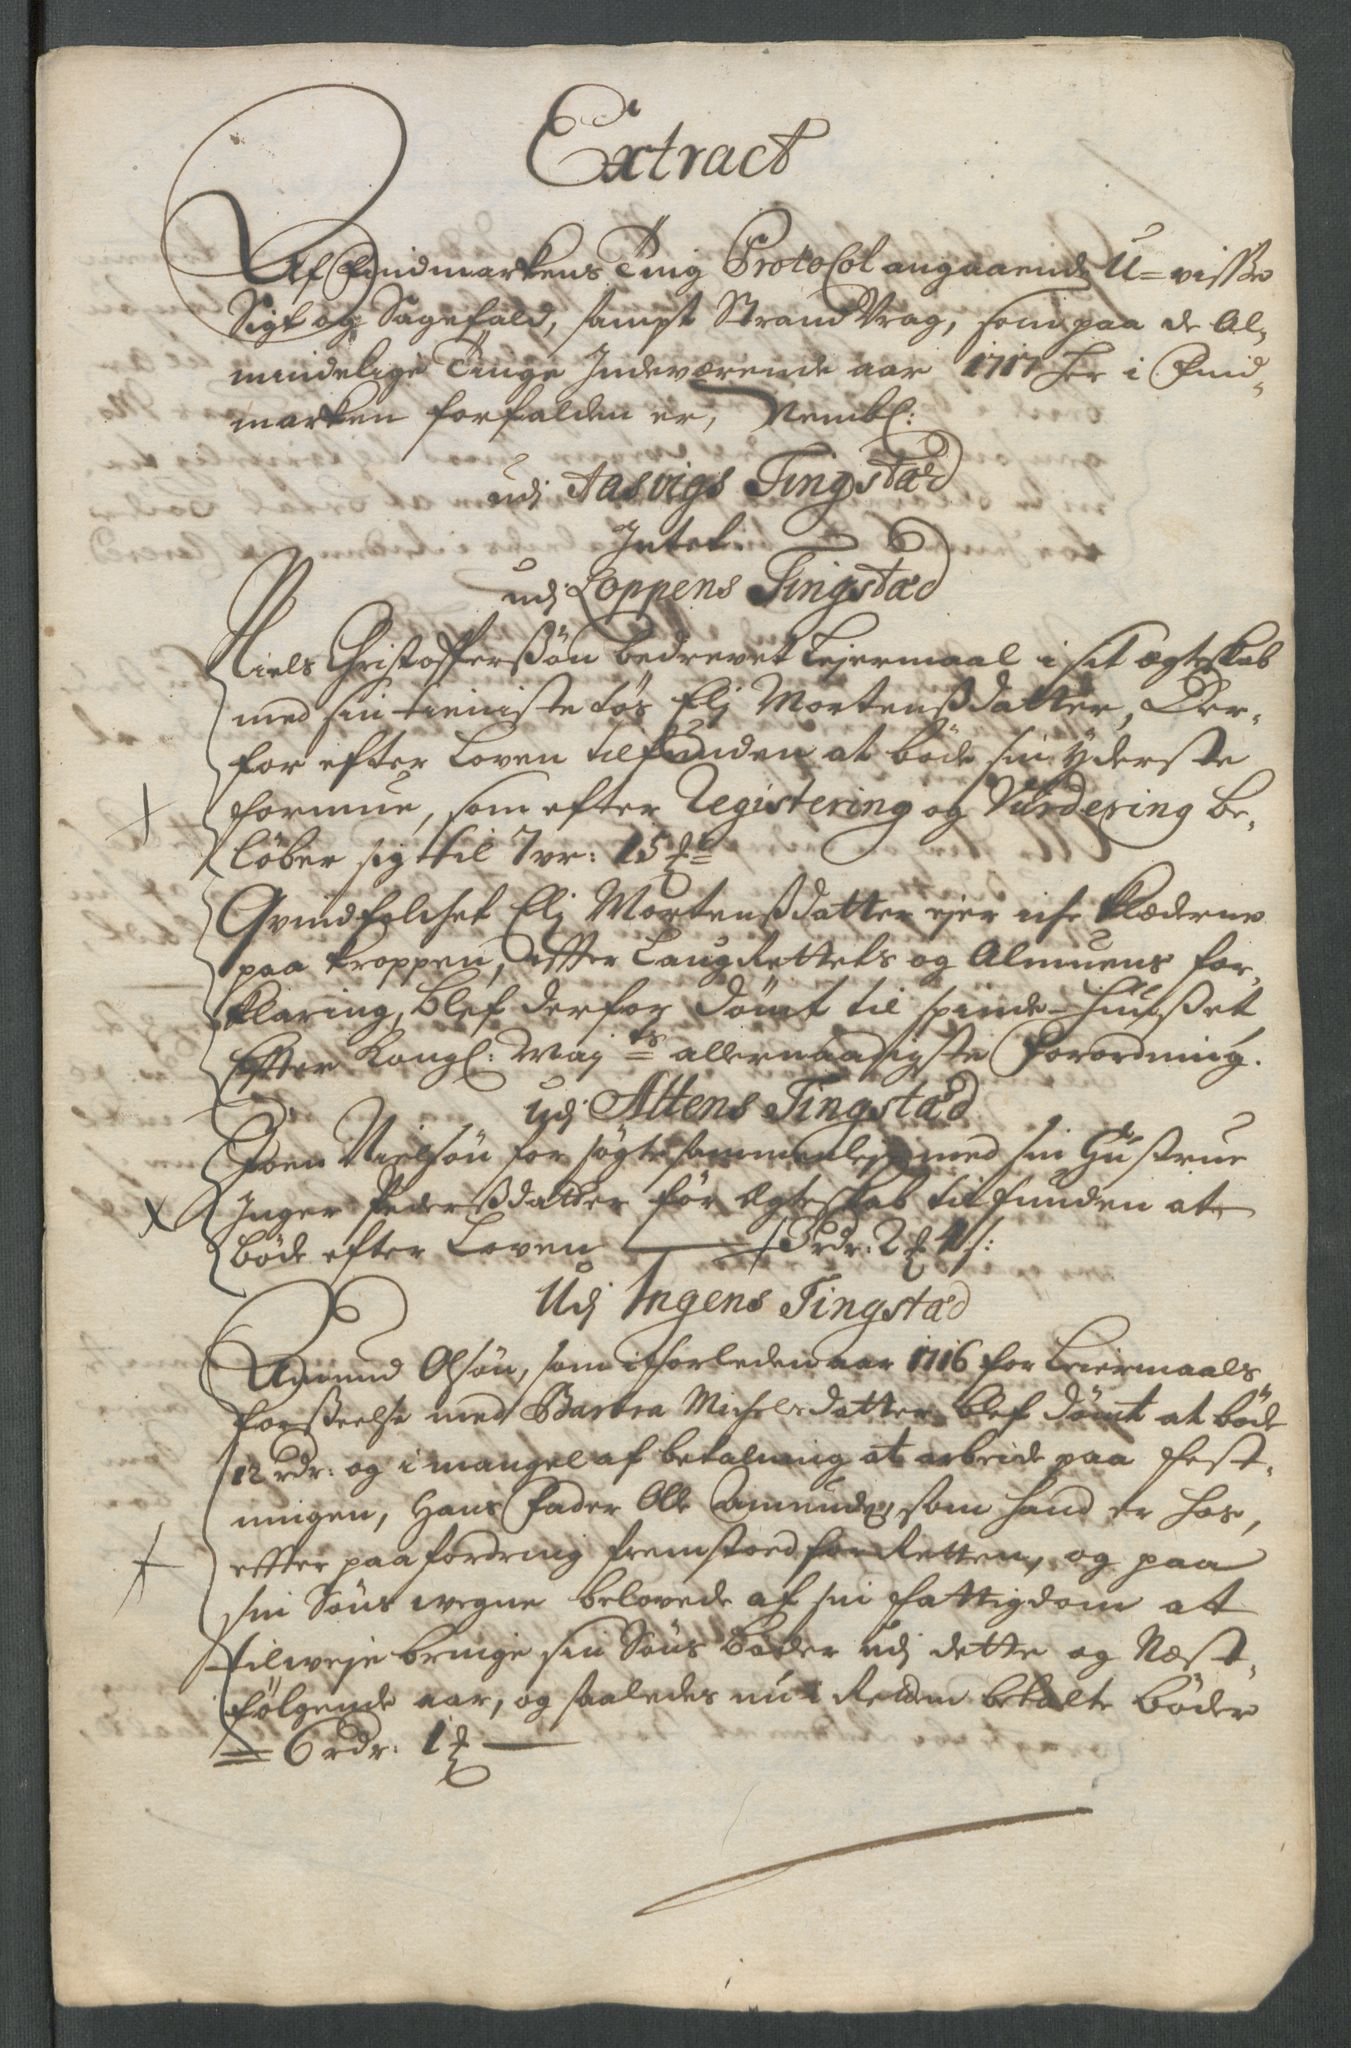 Extract
Af Findmarkens Ting Protocol angaaende U=visse
Sigt og Sagefald, sampt Strand Vrag, som paa de Al-
mindelige Tinge Indeværende aar 1717 her i Find-
marken forfalden er, Nembl:
udj Aasvigs Tingstæd
Intet.
udj Loppens Tingstæd
Niels Christoffersøn bedrevet Lejermaal i sit ægteskab
med sin tieniste tøs Elj Mortensdatter, Der-
for efter Loven tilfunden at böde sin yderste
formue, som efter Registering og Vurdering be-
löber sig til 7 vr: 15
Qvindfolchet Elj Mortensdatter ejer iche klæderne
paa kroppen, effter Laug Rettets og Almuens for-
klaring, blef derfor dömt til spinde-huuset
Effter Kongl: Maj ts allernaadigste Forordning.
Udj Altens Tingstæd
Joen Nielsön for søgte sammenleje med sin Hustrue
Inger Pedersdatter för Egteskab tilfunden at
böde efter Loven 3 rdr: 2 4 s:
Udj Ingens Tingstæd
Amund Olsön, som i forleden aar 1716 for Leiermaals
forseelse med Barbra Michelsdatter blef dömt at böde
12 rdr: og i mangel af betalning at arbeide paa fest-
ningen, Hans Fader Ole Amundsøn, som hand er hos,
effter paafordring fremstoed for Retten, og paa
sin Söns wegne belovede af sin fattigdom at
tilweje bringe sin Söns Böder udj dette og Næst-
fölgende aar, og saaledes nu i Retten betalte böder
= 6 rdr: 1